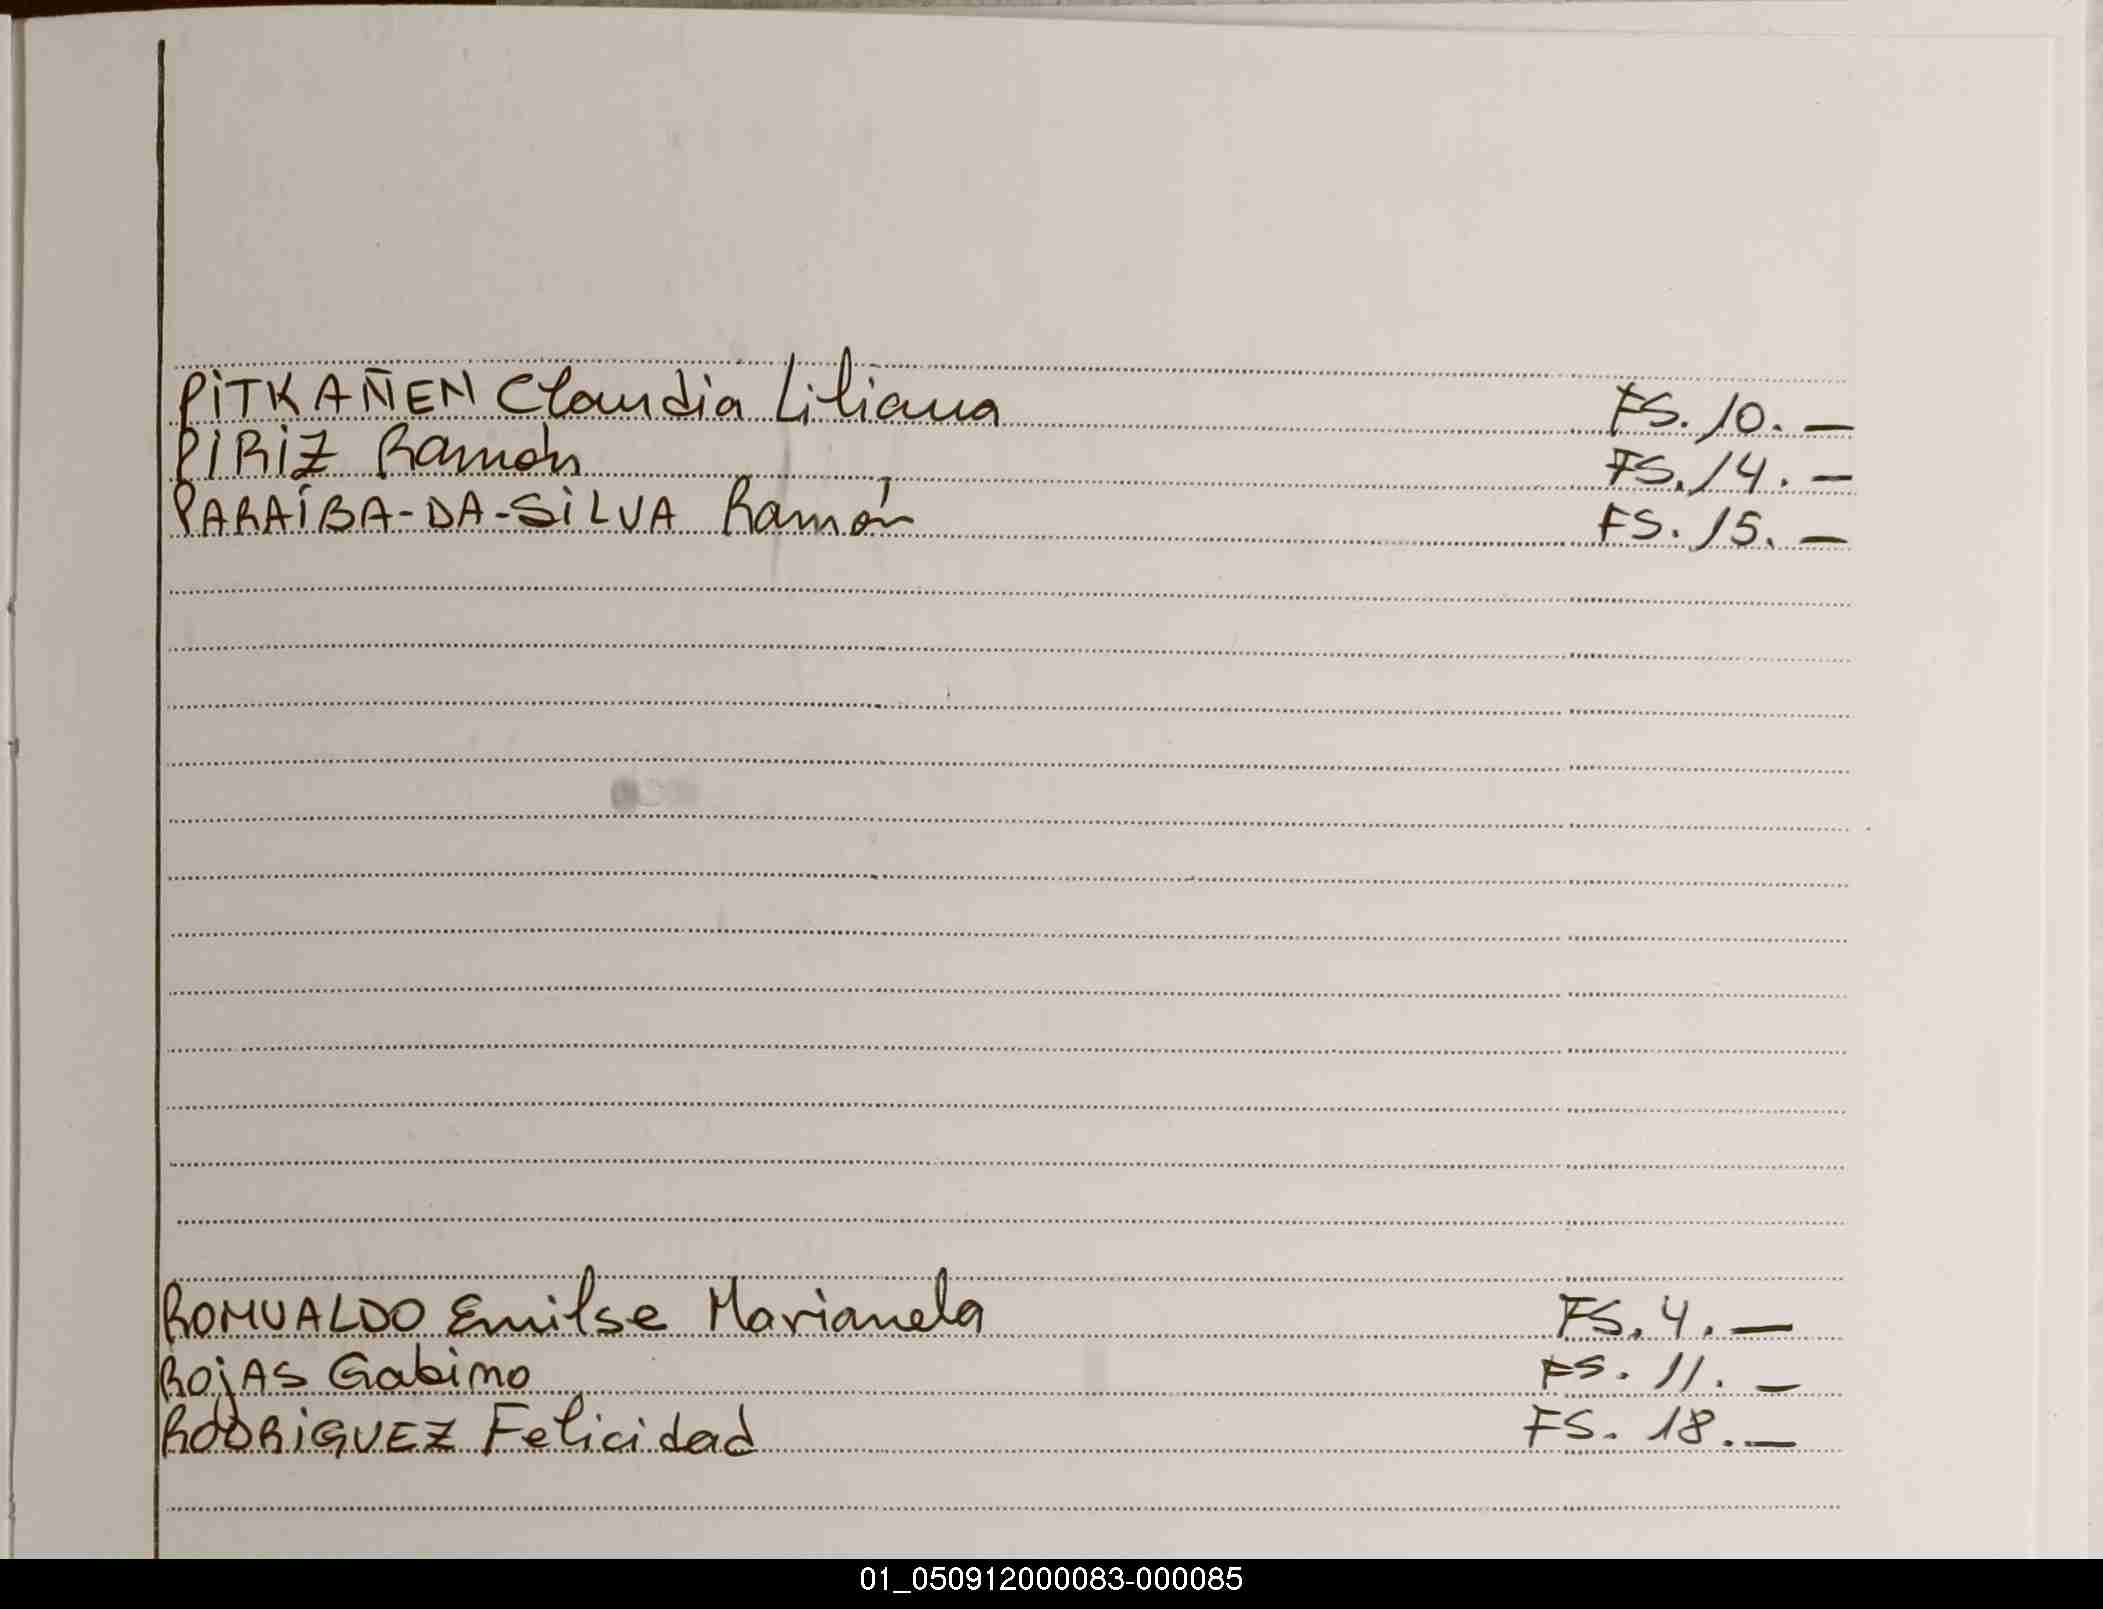 PITKAÑEN Claudia Liliana FS. 10. —
PIRIZ Ramón FS. 14. —
PARAÍBA-DA-SILVA Ramón FS. 15. —
ROMUALDO Emilse Marianela FS. 4. —
ROJAS Gabino FS. 11. —
RODRIGUEZ Felicidad FS. 18. —
01_050912000083-000085